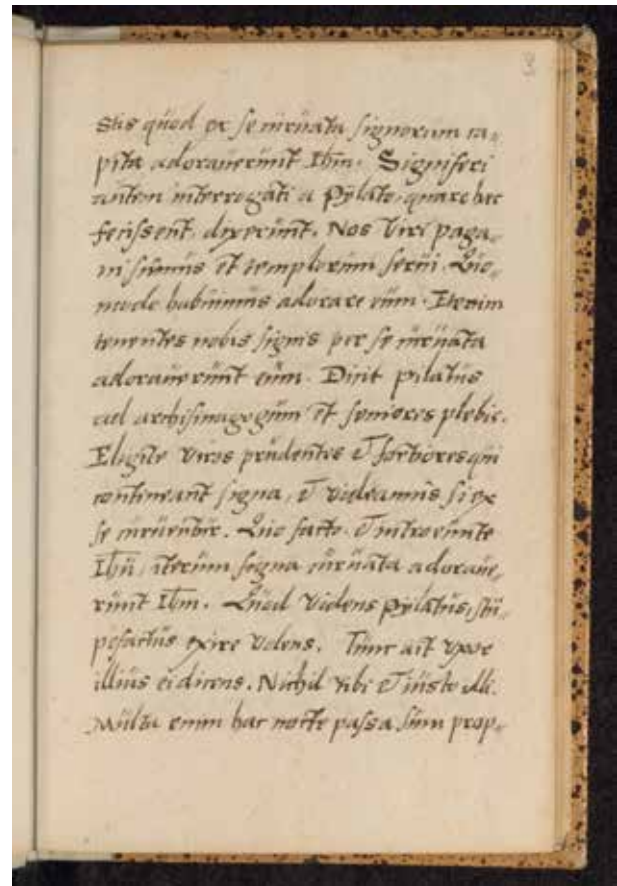 3
stis quod ex se incuruata signorum ca-
pita adorauerunt Ihm. Signiferi
autem interrogati a Pylato, quare hac
fecissent, dixerunt. Nos Viri paga-
ni sumus et templorum serui. Quo-
modo habuimus adorare eum. Etenim
tenentes nobis signis per se incuruata
adorauerunt eum. Dixit pilatus
ad archisinagogum et seniores plebis.
Eligite viros prudentes & fortiores qui
contineant signa, & videamus si ex
se incuruentur. Quo facto. & introeunte
Ihu, iterum signa curuata adoraue-
runt Ihm. Quod Videns pylatus, stu-
pefactus exire volens. Tunc ait vxor
illius ei dicens. Nichil tibi & iusto illi.
Multa enim hac nocte passa sum prop-